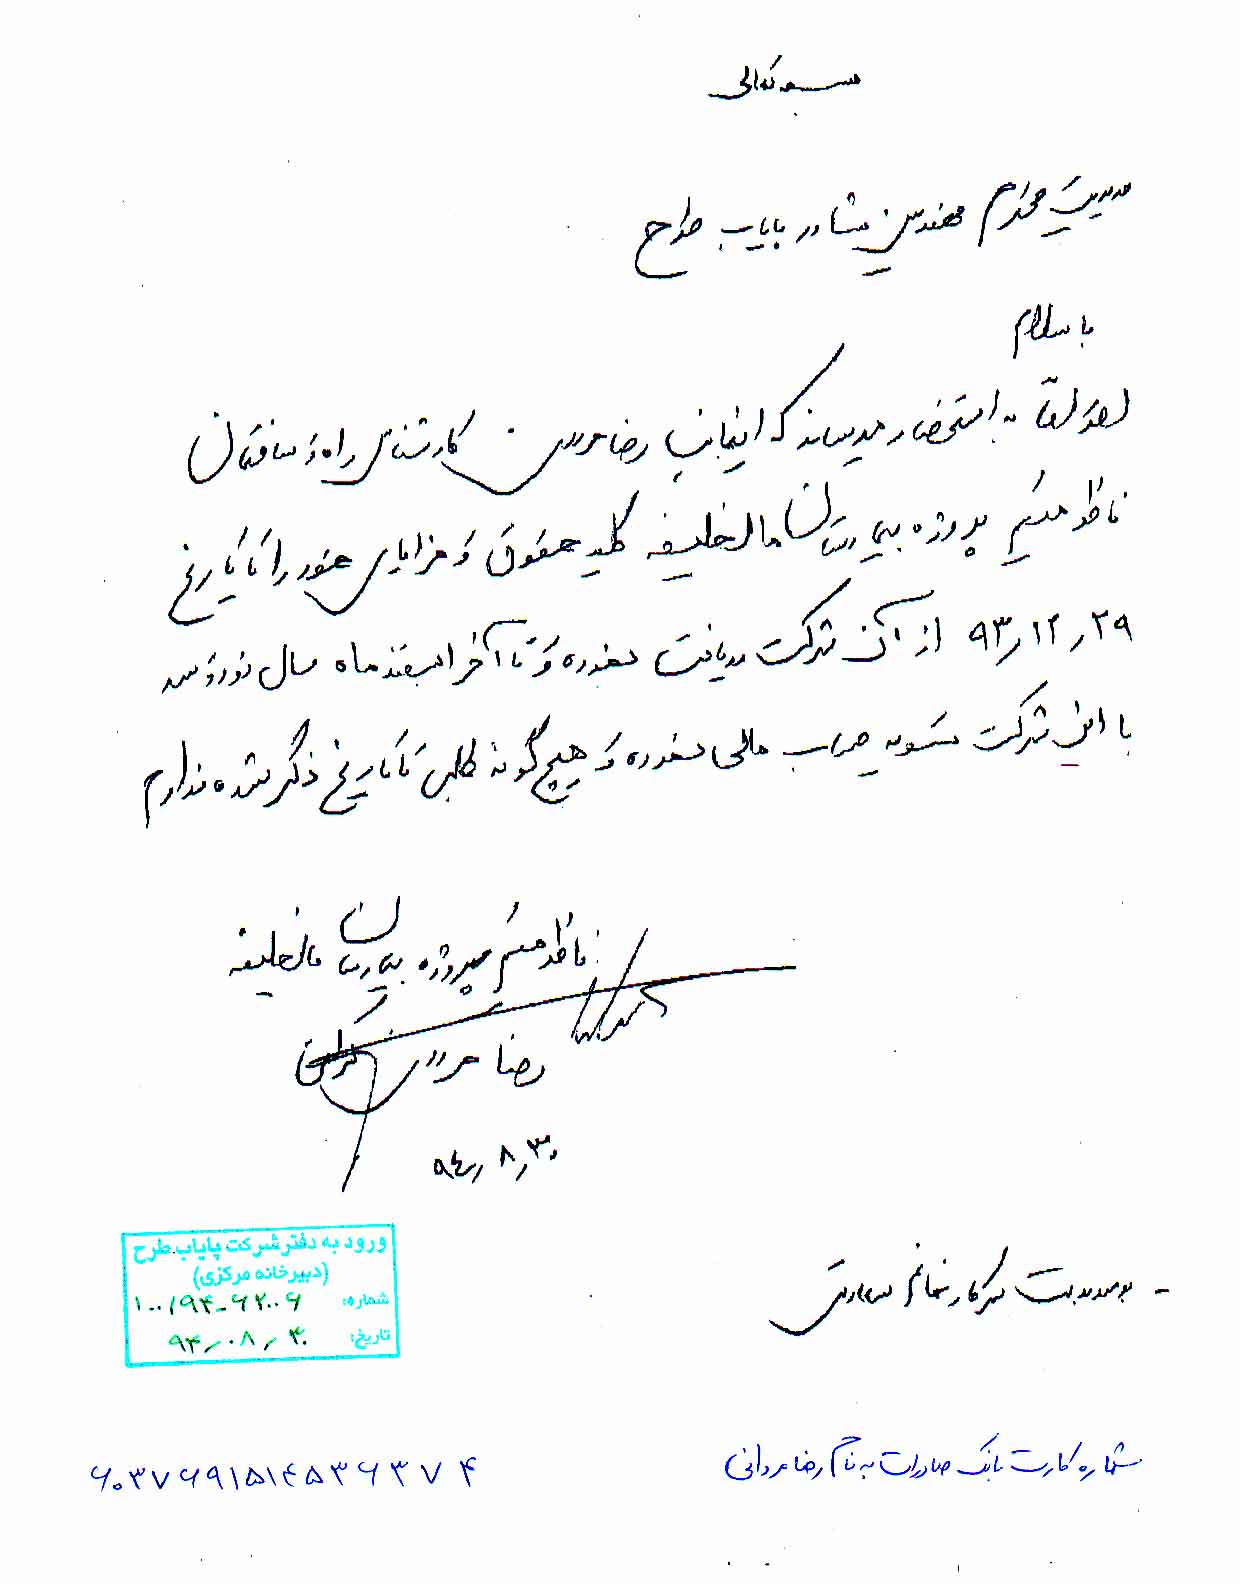 بسمه تعالی
مدیریت محترم مهندسین مشاور پایاب طرح
با سلام
احتراماً به استحضار میرساند که اینجانب رضا مردانی کارشناس راه و ساختمان
ناظر مقیم پروژه بیمارستان مال خلیفه کلیه حقوق و مزایای خود را تا تاریخ
۹۳٫۱۲٫۲۹ از آن شرکت دریافت نموده و تا آخر اسفند ماه سال نود و سه
با این شرکت تسویه حساب مالی نموده و هیچ گونه طلبی تا تاریخ ذکر شده ندارم
ناظر مقیم پروژه بیمارستان مال خلیفه
رضا مردانی
۹٤٫۸٫۳۰
ورود به دفتر شرکت پایاب طرح
(دبیرخانه مرکزی)
شماره: ۱۰۰/۹۴-۶۲۰۰۶
تاریخ: ۹۴٫۰۸٫۳۰
- سرکار خانم
شماره کارت بانک صادرات به نام رضا مردانی
۶۰۳۷۶۹۱۵۱۴۵۳۶۳۷۴